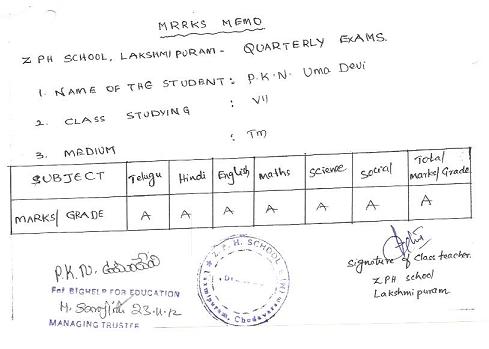 MRRKS MEMO
Z PH SCHOOL, LAKSHMIPURAM - QUARTERLY EXAMS.
1. NAME OF THE STUDENT : P.K.N. Uma Devi
2. CLASS STUDYING : VII
3. MEDIUM : TM
SUBJECT Telugu Hindi English maths science social Total marks/Grade
MARKS/ GRADE A A A A A A A
Signature of Class teacher.
ZPH school
Lakshmipuram
P.K.N. ఉమాదేవి
For BIGHELP FOR EDUCATION
M. Sarojini 23-11-12
MANAGING TRUSTEE
Z. P. H. SCHOOL
Laxmipuram, Chodavaram (M)